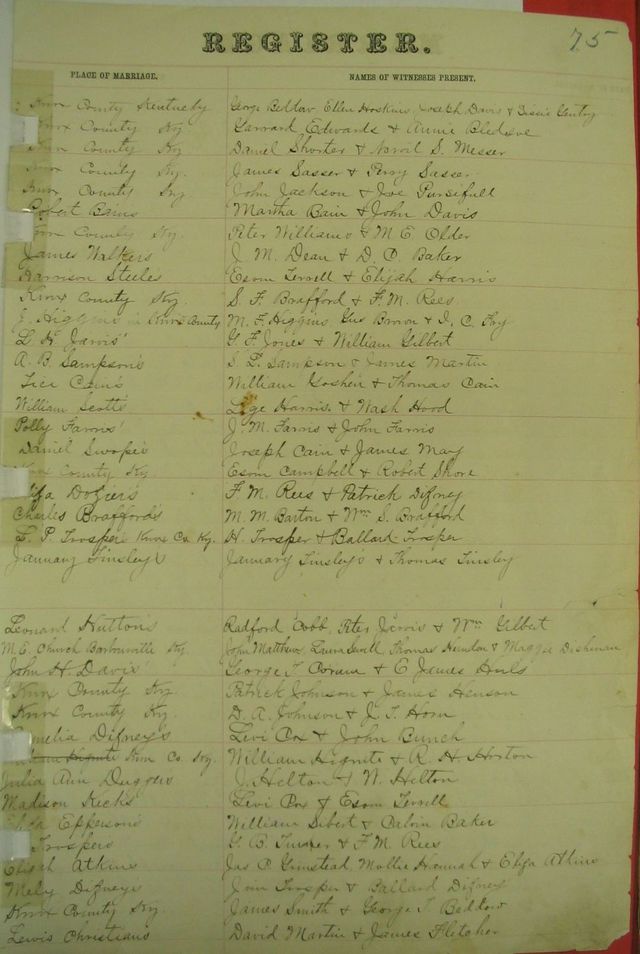 75
REGISTER.
PLACE OF MARRIAGE. NAMES OF WITNESSES PRESENT.
Knox County Kentucky George Beddow Ellen Hoskins, Joseph Davis & Gentry
Knox County Ky Garrard Edwards & Annie Bledsoe
Knox County Ky Daniel Shorter & S. Messer
Knox County Ky. James Sasser & Perry Sasser
Knox County Ky John Jackson & Joe Pursifull
Robert Bains Martha Bain & John Davis
Knox County Ky. Peter Williams & M E Older
James Walkers J. M. Dean & D. C. Baker
Harrison Steeles Esom Terrell & Elijah Harris
Knox County Ky. S. F. Brafford & F. M. Rees
Higgins in Knox County M. F. Higgins, Gus Brown & I. C. Fry
L. H. Jarvis' G F. Jones & William Gilbert
A. B. Sampson's S. L. Sampson & James Martin
Cain's William Goshen & Thomas Cain
William Scotts Lige Harris & Wash Hood
Polly Farris' J. M. Farris & John Farris
Daniel Swope's Joseph Cain & James May
Knox County Ky Esom Campbell & Robert Shore
Dozier's F. M. Rees & Patrick Difney
Charles Brafford's M. M. Barton & Wm S. Brafford
P. Trosper Knox Co. Ky. H. Trosper & Ballard Trosper
January Tinsley's January Tinsley's & Thomas Tinsley
Leonard Huttons Radford Cobb, Peter Jervis & Wm Gilbert
M. E. Church Barbourville Ky. John Matthews, Laura Thomas Herndon & Maggie Dishman
John H. Davis' George T Corum & C James
Knox County Ky Patrick Johnson & James Henson
Knox County Ky. D. A. Johnson & J. T. Horn
Difney's Levi Cox & John Bunch
Hignite Knox Co. Ky. William Hignite & R. H. Horton
Julia Ann Duggers J. Helton & W. Helton
Madison Levi Cox & Esom Terrell
Epperson's William Sibert & Calvin Baker
Trospers G. B. Turner & F. M. Rees
Elijah Atkins Jas P. Grinstead, Mollie Hannah & Eliza Atkins
Mely Difneys Trosper & Ballard Difney
Knox County Ky. James Smith & George T Beddow
Lewis Christians David Martin & James Fletcher